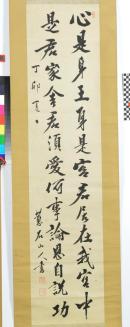 心是身王身是宮君居在我宮中
是君家舍君須愛何事論恩自説功
丁卯夏日
山人書